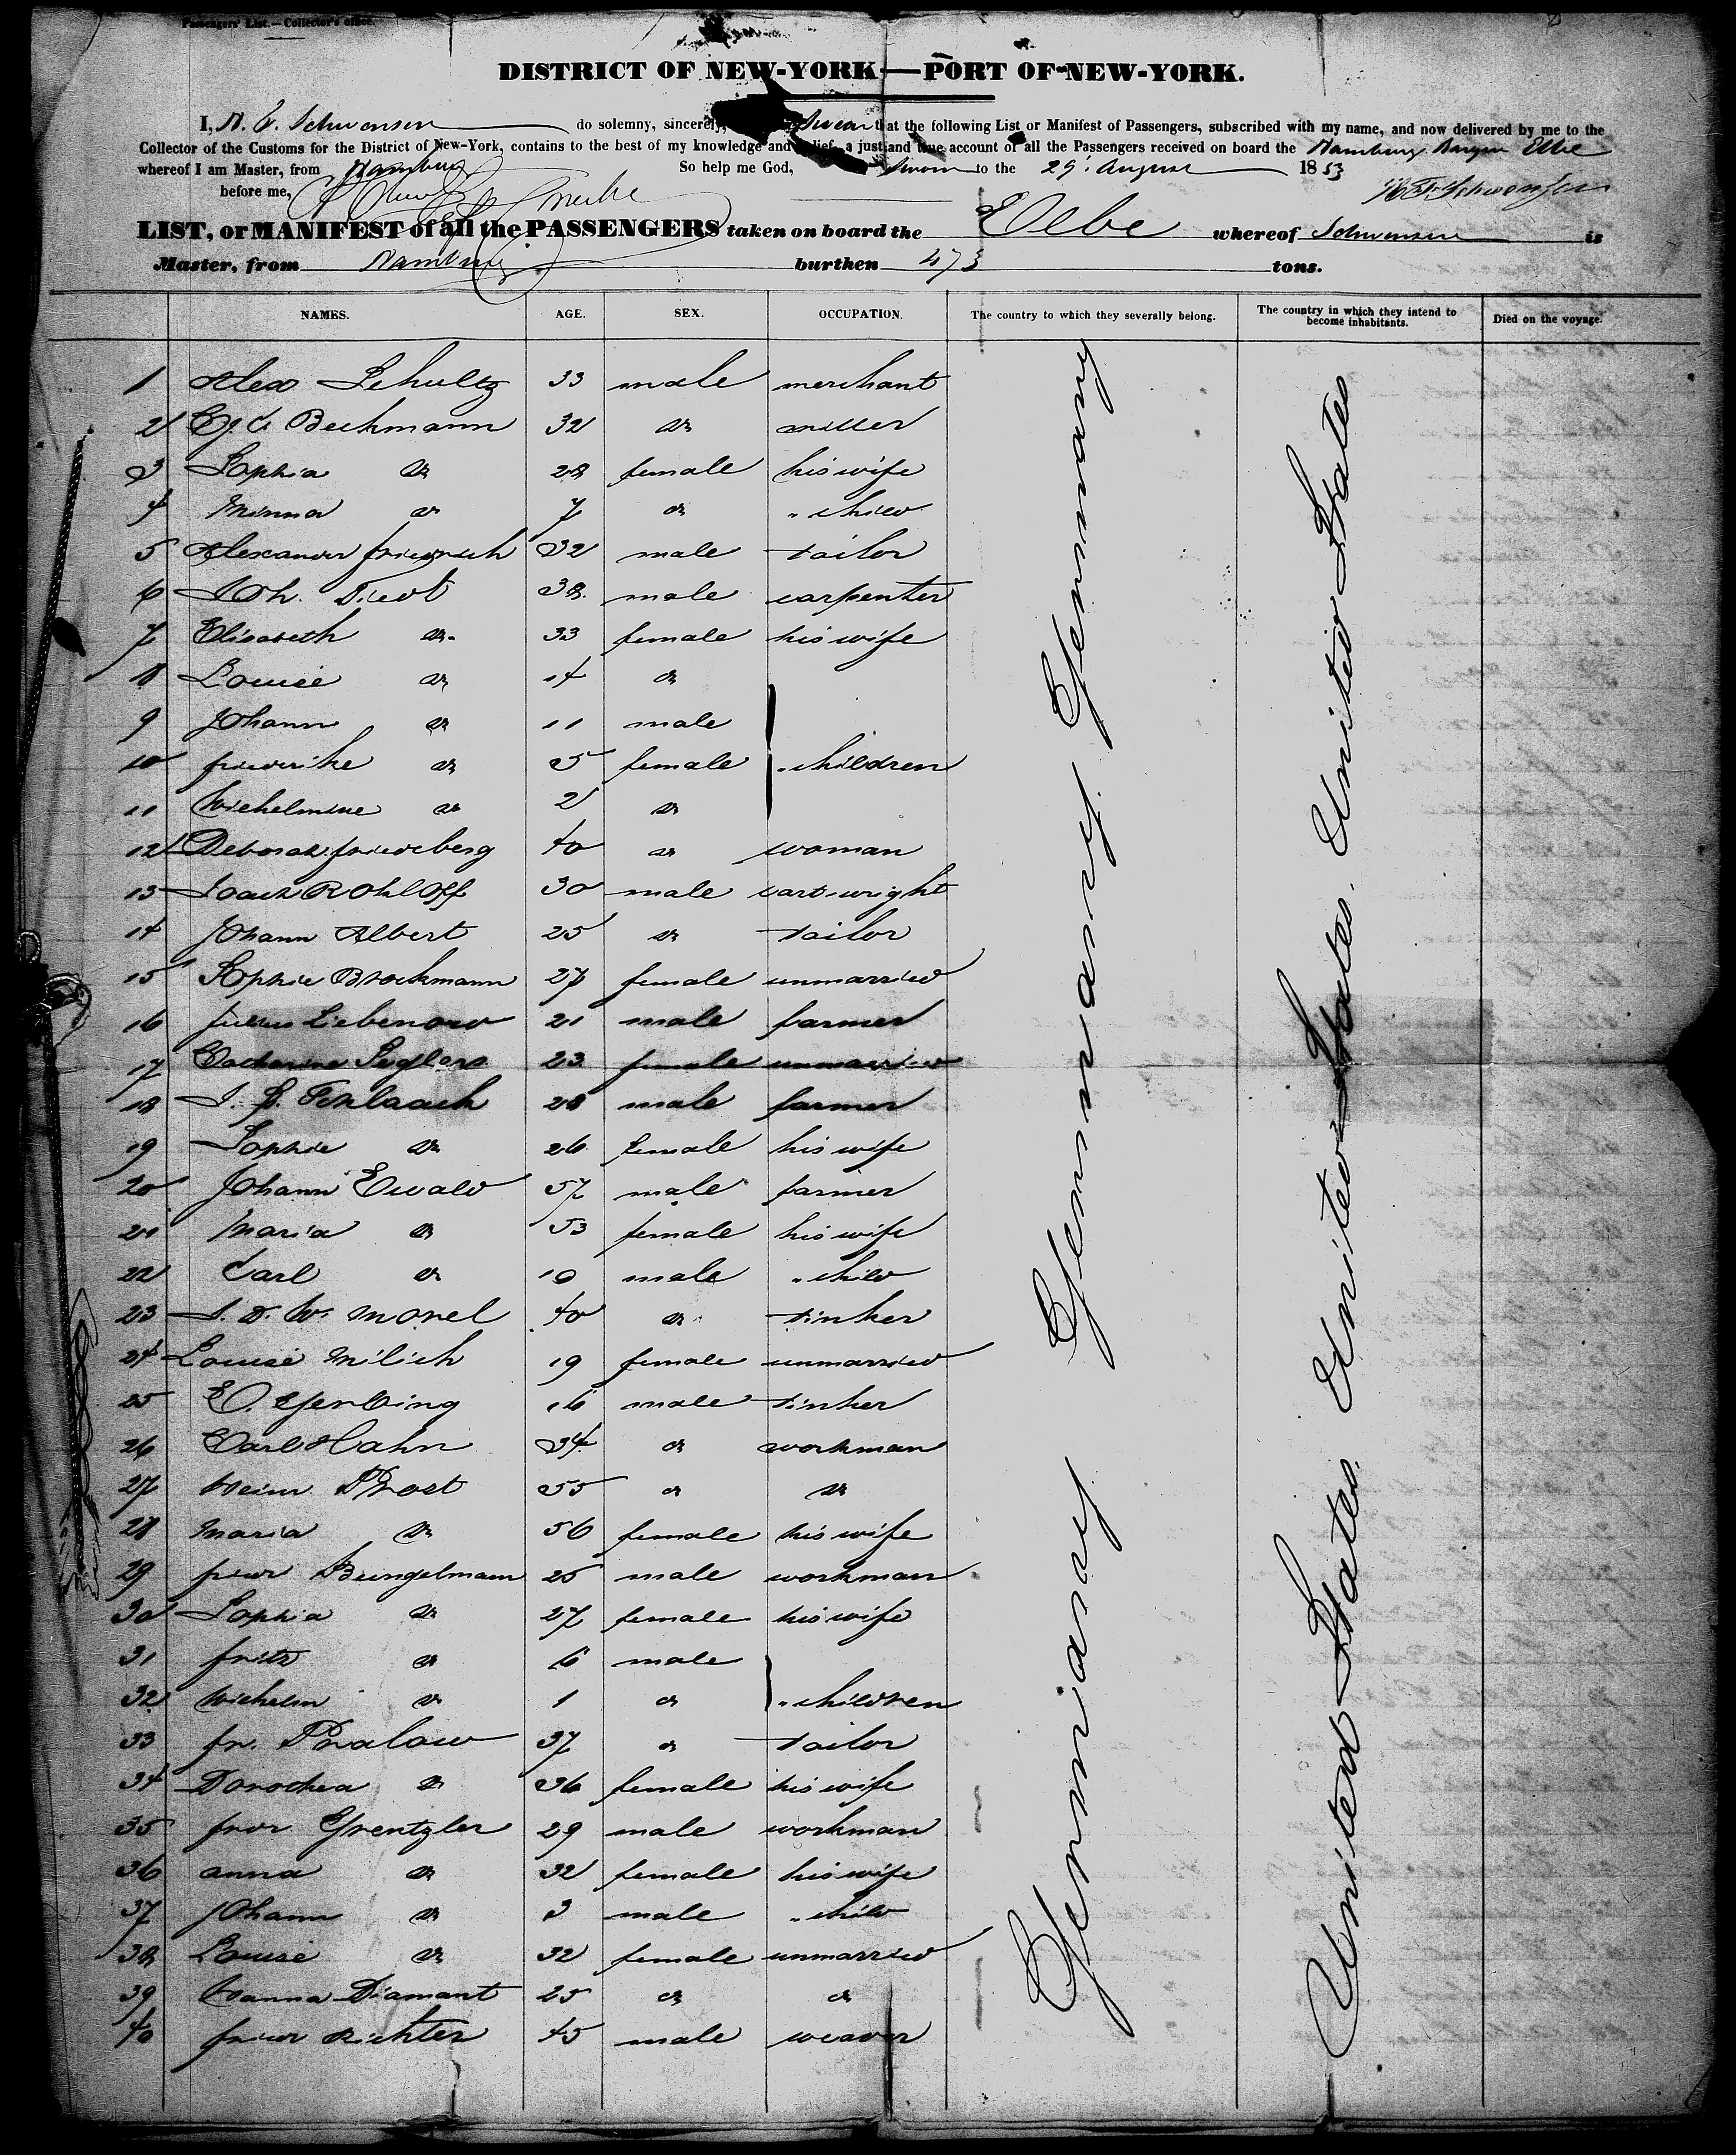 Passengers' List.—Collector's office.
DISTRICT OF NEW-YORK—PORT OF NEW-YORK.
I, Schwensen do solemny, sincerely, swear that the following List or Manifest of Passengers, subscribed with my name, and now delivered by me to the
Collector of the Customs for the District of New-York, contains to the best of my knowledge and belief, a just and true account of all the Passengers received on board the Hamburg Barque Elbe
whereof I am Master, from Hamburg So help me God, Sworn to the 29' August 1853
before me,
LIST, or MANIFEST of all the PASSENGERS taken on board the Elbe whereof Schwensen is
Master, from Hamburg burthen 473 tons.
NAMES. AGE. SEX. OCCUPATION. The country to which they severally belong. The country in which they intend to become inhabitants. Died on the voyage.
1 Alex Schultz 33 male merchant
2 Beckmann 32 do miller
3 Sophia do 28 female his wife
4 Minna do 7 do " child
5 Alexander Friedrich 32 male tailor
6 Joh. 38 male carpenter
7 Elisabeth do 33 female his wife
8 Louise do 14 do
9 Johann do 11 male
10 Friederike do 5 female " children
11 Wilhelmine do 2 do
12 Deborah Friedeberg 40 do woman
13 Joach Rohloff 30 male cart-wright
14 Johann Albert 25 do tailor
15 Sophie Brockmann 27 female unmarried
16 Julius Liebenow 21 male farmer
17 Catharine 23 female unmarried
18 28 male farmer
19 Sophie do 26 female his wife
20 Johann Ewald 57 male farmer
21 Maria do 53 female his wife
22 Carl do 10 male " child
23 J. D. W. Morel 40 do tinker
24 Louise Milich 19 female unmarried
25 E. Gerbing 16 male tinker
26 Carl Hahn 34 do workman
27 Heinr. Prost 55 do do
28 Maria do 56 female his wife
29 Friedr Bungelmann 25 male workman
30 Sophia do 27 female his wife
31 Fritz do 6 male
32 Wilhelm do 1 do " children
33 Fr. Pralow 37 do tailor
34 Dorothea do 36 female his wife
35 Fredr Grentzler 29 male workman
36 Anna do 32 female his wife
37 Johann do 3 male " child
38 Louise do 32 female unmarried
39 Hanna Diamant 25 do do
40 Friedr Richter 45 male weaver
Germany Germany. Germany
United States. United States. United States